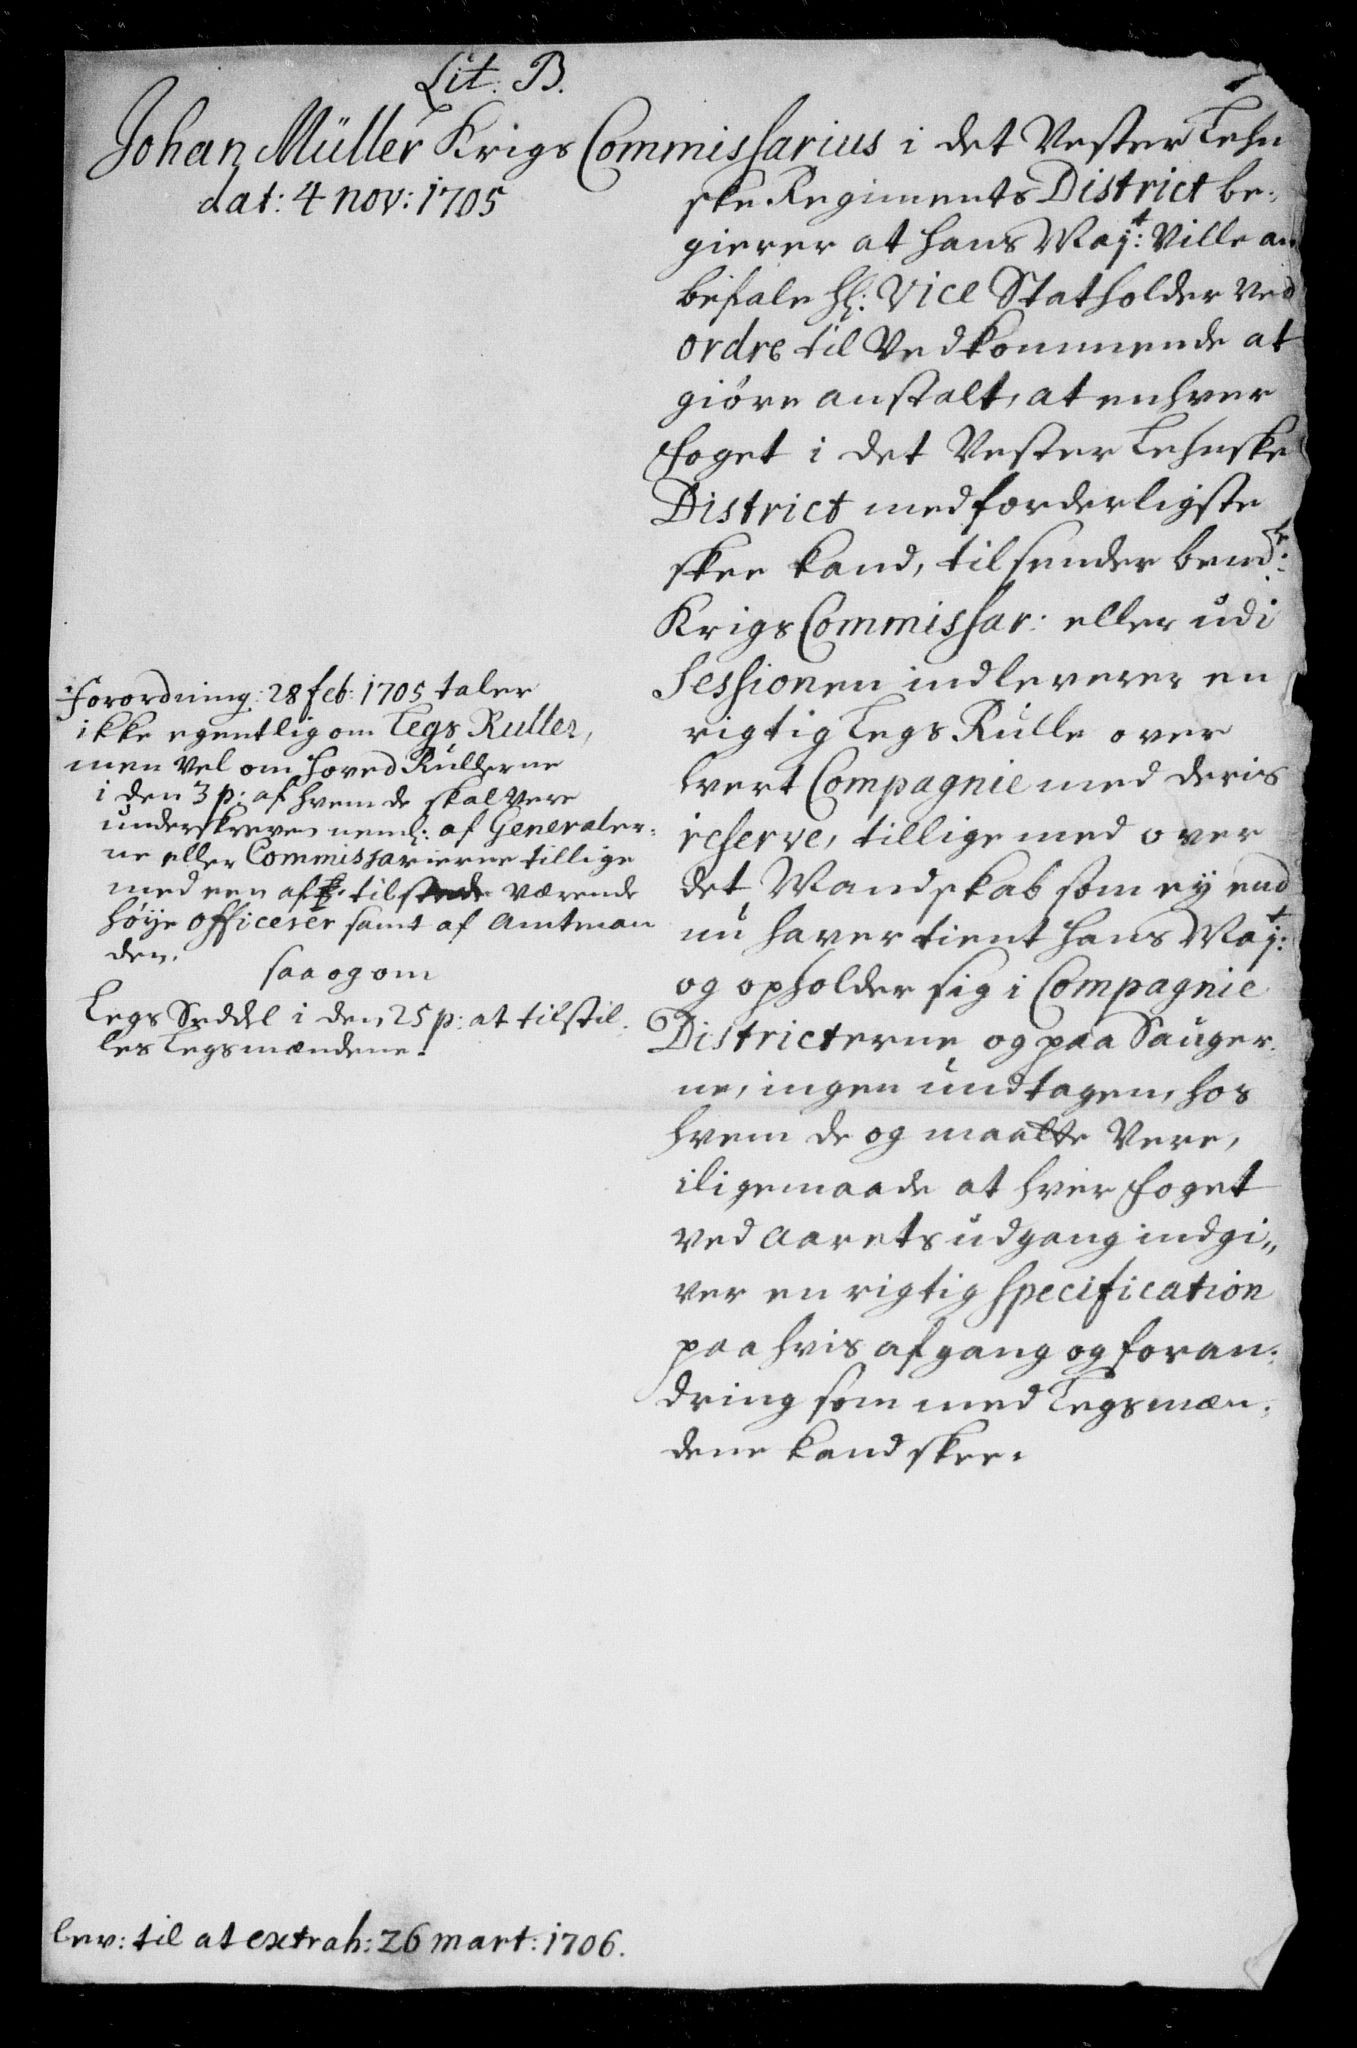 Lit: B.
Johan Müller Krigs Commissarius i det Vester Lehn
dat: 4 nov: 1705
ske Regiments District be-
gierer at hans Maÿt: Ville an
befale Hl: Vice Statholder Ved
ordre til Vedkommende at
giöre anstalt, at enhver
foget i det Vester Lehnske
District med forderligste
skee kand, tilsender bemdte:
Krigs Commissar: eller udi
Sessionen indleverer en
rigtig Legs Rulle over
hvert Compagnie med deris
reserve, tillige med over
det Mandskab som ey end
nu haver tient hans Maÿt:
og opholder sig i Compagnie
Districterne og paa Sauger-
ne, ingen undtagen, hos
hvem de og maatte Vere,
iligemaade at hver foget
ved Aarets udgang indgi„
ver en rigtig Specification
paa hvis afgang og foran-
dring som med Legsmæn-
dene kand skee.
Forordning: 28 feb: 1705 taler
ikke egentlig om Legs Ruller,
men Vel om Hoved Rullerne
i den 3 p: af hvem de skal Vere
underskreven neml: af Generaler-
ne eller Commissarierne tillige
med een af tilstede Værende
høÿe Officerer samt af Amtman
den.
saa og om
Legs Seddel i den 25 p: at tilstil-
les Legsmændene!
lev: til at extrah: 26 mart: 1706.